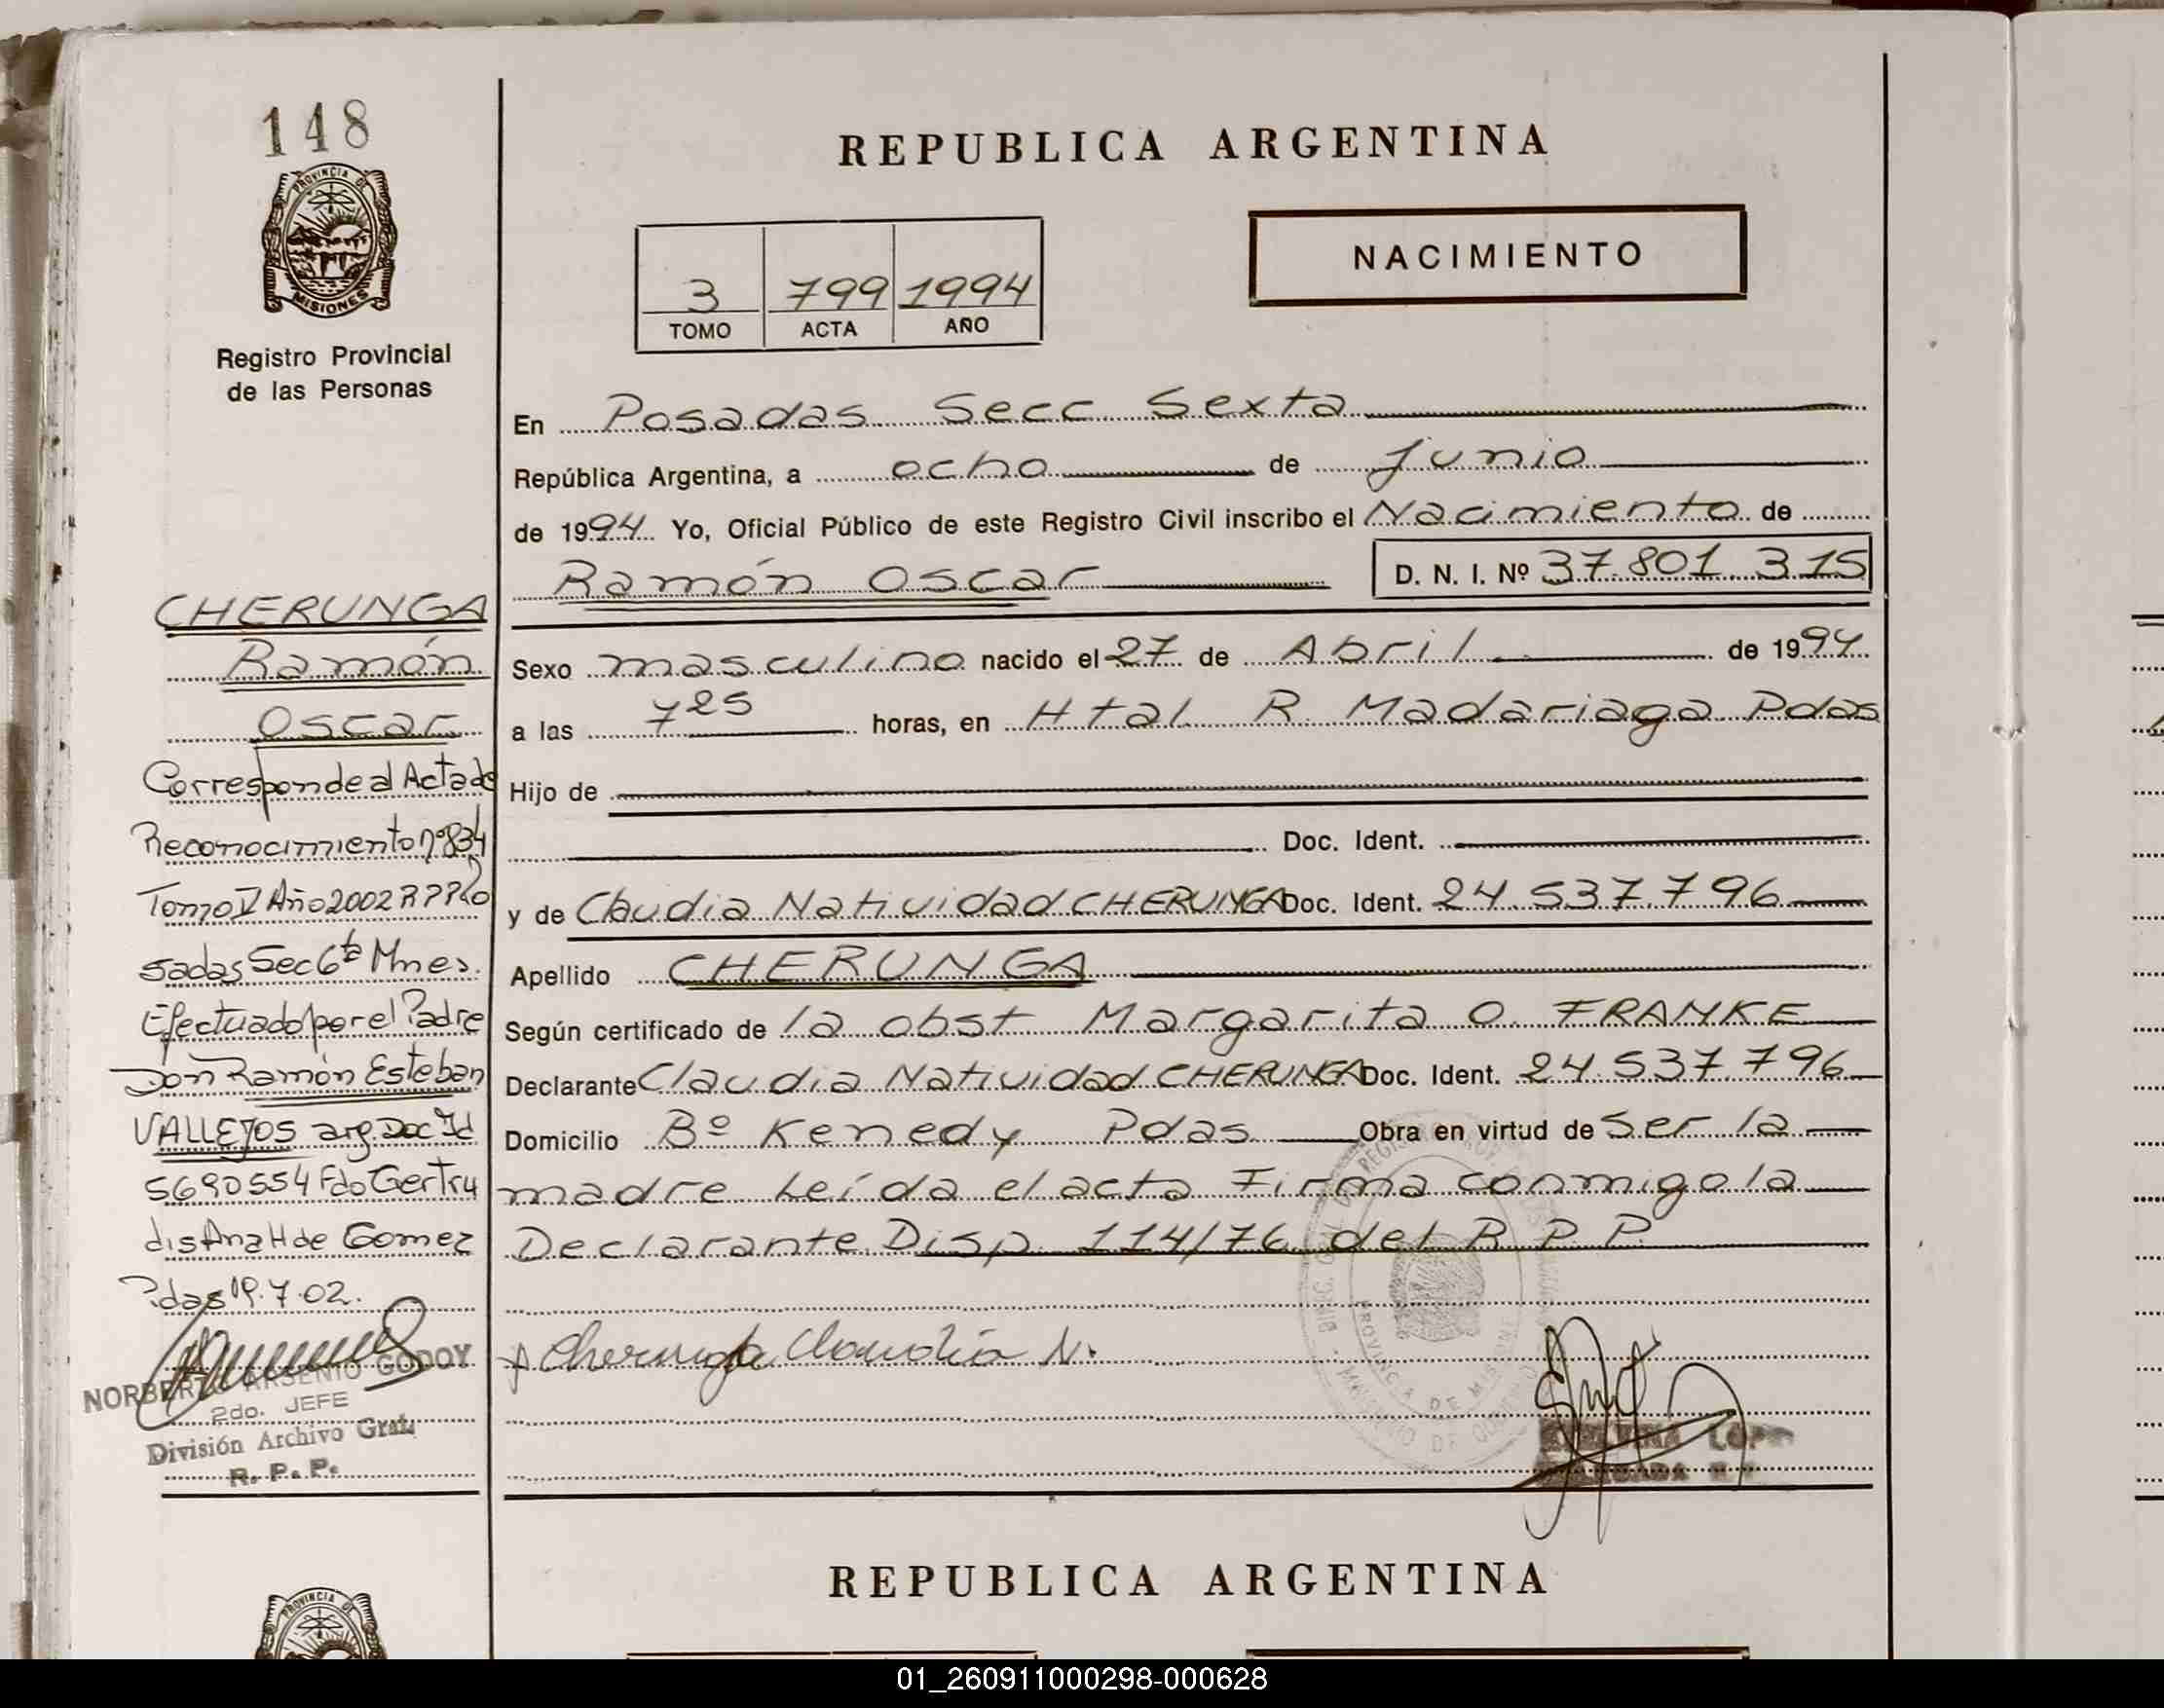 148
PROVINCIA DE
MISIONES
Registro Provincial
de las Personas
CHERUNGA
Ramón
Oscar
Corresponde al Acta de
Reconocimiento nº 834
Tomo V Año 2002 R P P Po
sadas Sec 6ta Mnes.
Efectuado por el Padre
Don Ramón Esteban
VALLEJOS arg. Doc Id
5690554 Fdo Gertru
dis Ana H de Gomez
Pdas 19.7.02.
NORBERTO ARSENIO GODOY
2do. JEFE
División Archivo Gral.
R. P. P.
REPUBLICA ARGENTINA
3 799 1994
TOMO ACTA AÑO
NACIMIENTO
En Posadas Secc Sexta
República Argentina, a ocho de junio
de 1994 Yo, Oficial Público de este Registro Civil inscribo el Nacimiento de
Ramón Oscar D. N. I. Nº 37.801.315
Sexo masculino nacido el 27 de Abril de 1994
a las 7 25 horas, en Htal R. Madariaga Pdas
Hijo de
Doc. Ident.
y de Claudia Natividad CHERUNGA Doc. Ident. 24.537.796
Apellido CHERUNGA
Según certificado de la obst Margarita O. FRANKE
Declarante Claudia Natividad CHERUNGA Doc. Ident. 24.537.796
Domicilio Bº Kenedy Pdas Obra en virtud de ser la
madre Leída el acta Firma conmigo la
Declarante Disp 114/76 del R P P.
Cherunga Claudia N.
PROVINCIA DE MISIONES
LOPEZ
REPUBLICA ARGENTINA
PROVINCIA DE
01_260911000298-000628